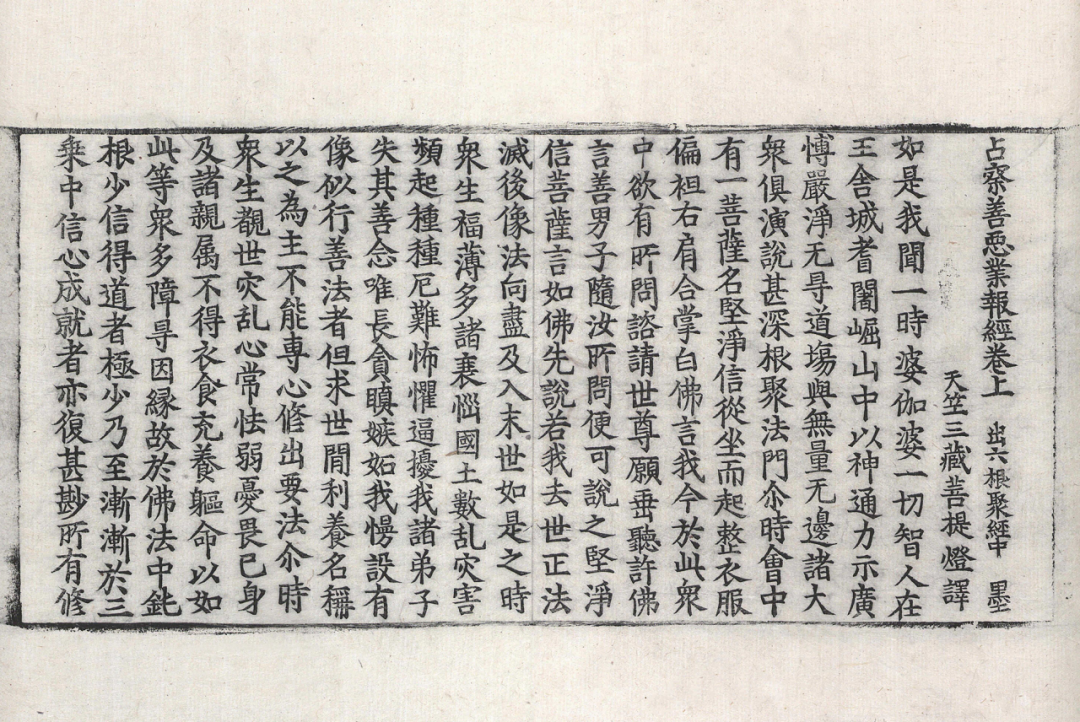 占察善惡業報經卷上 出六根聚經中 墨
天竺三藏菩提燈譯
如是我聞一時婆伽婆一切智人在
王舍城耆闍崛山中以神通力示廣
博嚴淨无㝵道塲與無量无邊諸大
衆俱演說甚深根聚法門尒時會中
有一菩薩名堅淨信從坐而起整衣服
偏袒右肩合掌白佛言我今於此衆
中欲有所問諮請世尊願垂聽許佛
言善男子隨汝所問便可說之堅淨
信菩薩言如佛先說若我去世正法
滅後像法向盡及入末世如是之時
衆生福薄多諸衰惱國土數乱灾害
頻起種種厄難怖懼逼擾我諸弟子
失其善念唯長貪瞋嫉妬我慢設有
像似行善法者但求世閒利養名稱
以之為主不能專心修出要法尒時
衆生覩世灾乱心常怯弱憂畏己身
及諸親属不得衣食充養軀命以如
此等衆多障㝵因緣故於佛法中鈍
根少信得道者極少乃至漸漸於三
乗中信心成就者亦復甚尠所有修